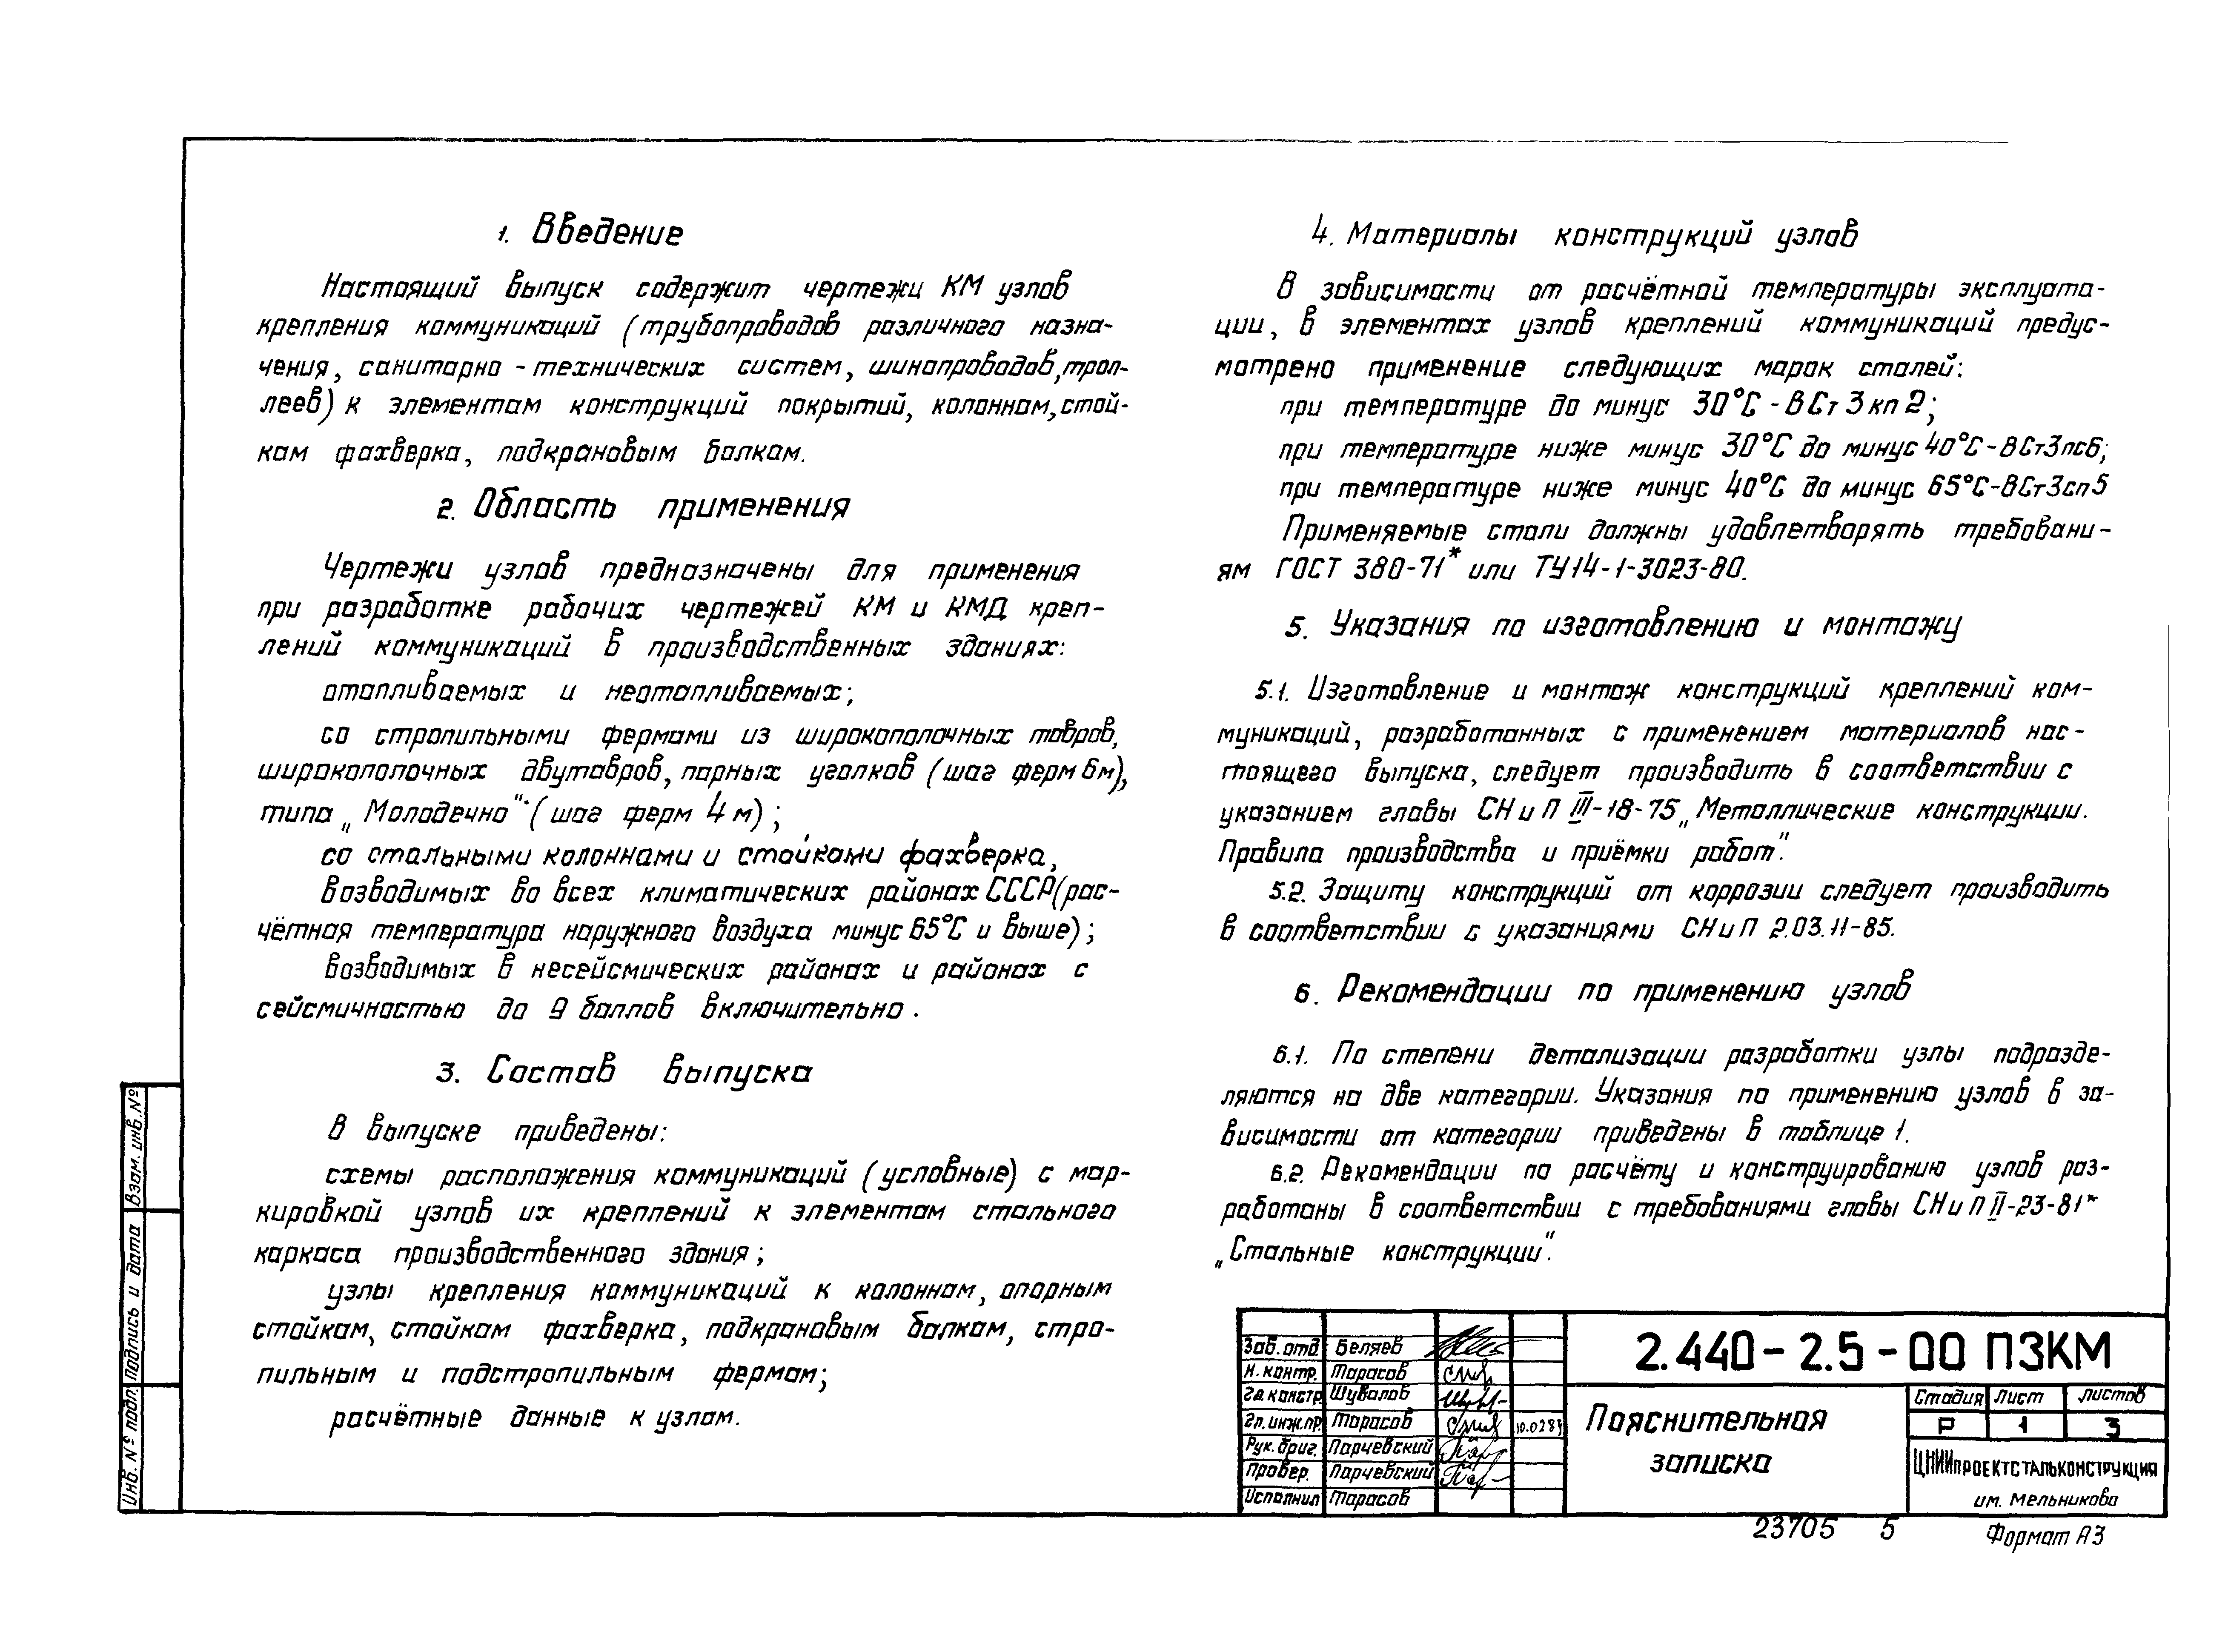 1. Введение
Настоящий выпуск содержит чертежи КМ узлов
крепления коммуникаций (трубопроводов различного назна-
чения, санитарно-технических систем, шинопроводов, трол-
леев) к элементам конструкций покрытий, колоннам, стой-
кам фахверка, подкрановым балкам.
2. Область применения
Чертежи узлов предназначены для применения
при разработке рабочих чертежей КМ и КМД креп-
лений коммуникаций в производственных зданиях:
отапливаемых и неотапливаемых;
со стропильными фермами из широкополочных тавров,
широкополочных двутавров, парных уголков (шаг ферм 6м),
типа „Молодечно“ (шаг ферм 4м);
со стальными колоннами и стойками фахверка,
возводимых во всех климатических районах СССР (рас-
чётная температура наружного воздуха минус 65°С и выше);
возводимых в несейсмических районах и районах с
сейсмичностью до 9 баллов включительно.
3. Состав выпуска
В выпуске приведены:
схемы расположения коммуникаций (условные) с мар-
кировкой узлов их креплений к элементам стального
каркаса производственного здания;
узлы крепления коммуникаций к колоннам, опорным
стойкам, стойкам фахверка, подкрановым балкам, стро-
пильным и подстропильным фермам;
расчётные данные к узлам.
4. Материалы конструкций узлов
В зависимости от расчётной температуры эксплуата-
ции, в элементах узлов креплений коммуникаций предус-
мотрено применение следующих марок сталей:
при температуре до минус 30°С - ВСт3кп2;
при температуре ниже минус 30°С до минус 40°С - ВСт3пс6;
при температуре ниже минус 40°С до минус 65°С - ВСт3сп5
Применяемые стали должны удовлетворять требовани-
ям ГОСТ 380-71* или ТУ14-1-3023-80.
5. Указания по изготовлению и монтажу
5.1. Изготовление и монтаж конструкций креплений ком-
муникаций, разработанных с применением материалов нас-
тоящего выпуска, следует производить в соответствии с
указанием главы СНиП III-18-75 „Металлические конструкции.
Правила производства и приёмки работ“.
5.2. Защиту конструкций от коррозии следует производить
в соответствии с указаниями СНиП 2.03.11-85.
6. Рекомендации по применению узлов
6.1. По степени детализации разработки узлы подразде-
ляются на две категории. Указания по применению узлов в за-
висимости от категории приведены в таблице 1.
6.2. Рекомендации по расчёту и конструированию узлов раз-
работаны в соответствии с требованиями главы СНиП II-23-81*
„Стальные конструкции“.
Инв. № подл. Подпись и дата Взам. инв. №
Зав. отд. Беляев
Н. контр. Тарасов
Гл. констр. Шувалов
Гл. инж. пр. Тарасов
Рук. бриг. Парчевский
Провер. Парчевский
Исполнил Тарасов
2.440-2.5-00 ПЗКМ
Пояснительная
записка
Стадия Лист Листов
Р 1 3
ЦНИИпроектстальконструкция
им. Мельникова
23705 5
Формат А3